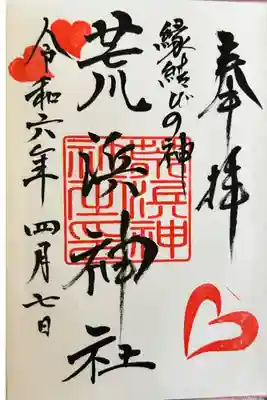 奉拝
縁結びの神
荒浜神社
荒浜神
社之印
令和六年 四月七日